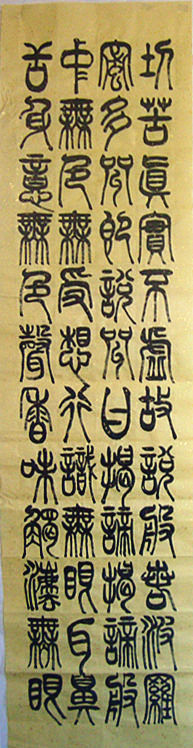 切苦眞實不虛故說般若波羅
蜜多咒即說咒曰揭諦揭諦般
中無色無受想行識無眼耳鼻
舌身意無色聲香味觸法無眼